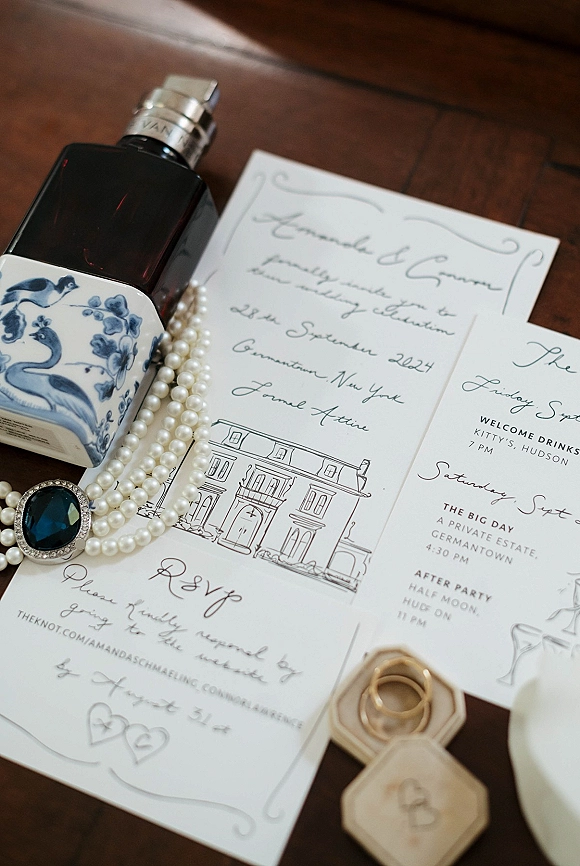 VAN
Amanda & Connor
formally invite you to
their wedding celebration
28th September 2024
Germantown, New York
Formal Attire
RSVP
Please kindly respond by
going to the website
THEKNOT.COM/AMANDASCHMAELING_CONNORLAWRENCE
by August 31st
A C
The
Friday Sept
WELCOME DRINKS
KITTY'S, HUDSON
7 PM
Saturday, Sept
THE BIG DAY
A PRIVATE ESTATE,
GERMANTOWN
4:30 PM
AFTER PARTY
HALF MOON,
HUDSON
11 PM